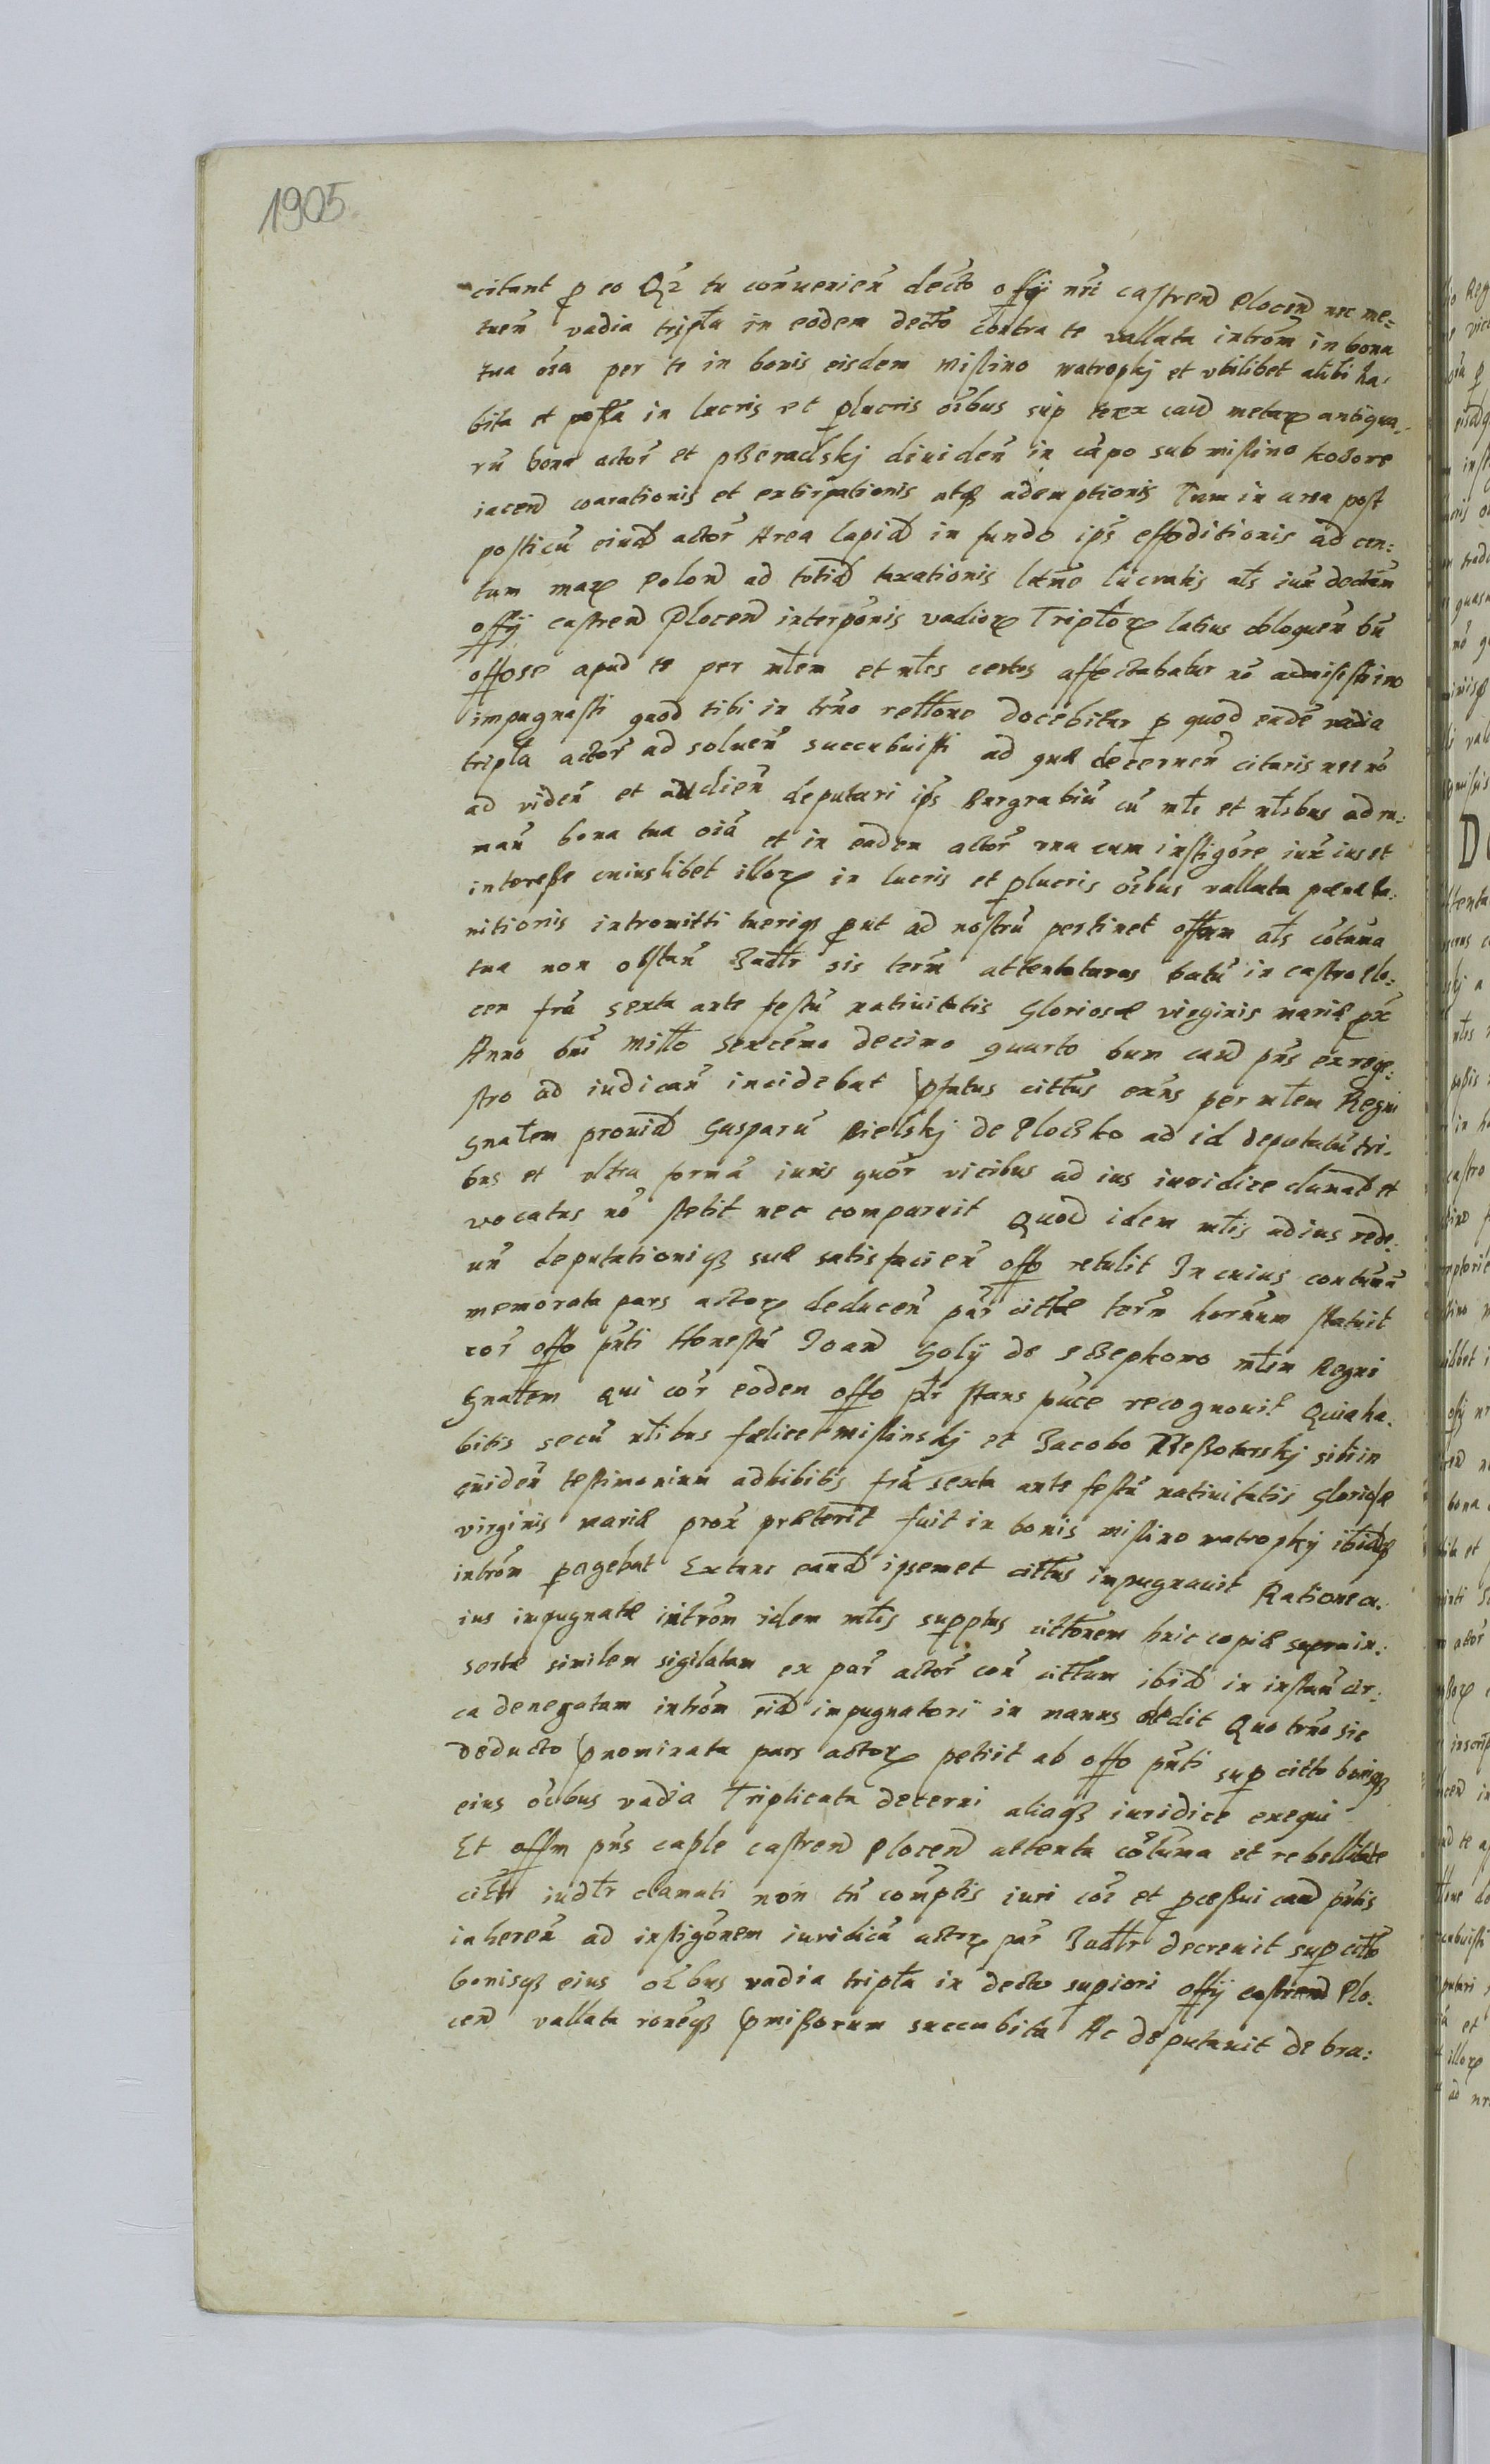 1905
citant p eo Qz tu conuenien decto offij nri castren Plocen nec me=
tuen vadia tripta in eodem decto contra te vallata introm in bona
tua oia per te in bonis eisdem Mislino watropkj et vbilibet alibi ha=
bita et possa in lucris et plucris oibus sup caud metarum antiqua=
ru bona actor et pßeradskj diuiden in capo sub mislino kosore
iacend coarationis et extirpationis atq ademptionis Tum in area post
posticu eiusd actor Area lapid in fundo ips effoditionis ad cen=
tum mar Polon ad totid taxationis lucratis als iux dectum
offij castren Plocen interponis vadior Triptor latius obloquen bu
offose apud te per mlem et nles certos affectabatur no admisisti imo
impugnasti quod tibi in trno rellone docebitur p quod eade vadia
tripta actor ad soluen succubuisti ad quae decernen citaris nec no
ad viden et audien deputari ips Burgrabiu cu mle et nlibus ad m=
man bona tua oia et in eadem actor vna cum instigore iux ius et
interesse cuiuslibet illor in lucris et plucris oibus vallata paena ba=
nitionis intromitti tueriq put ad nostru pertinet offum als cotuma
tua non obstan Iudtr sis term attentaturus Datu in castro Plo=
cen fra sexta ante festu natiuitatis Gloriosae virginis mariae px
Anno Dni Millo sexcemo decimo quarto Dum caud pns ex rege=
stro ad iudican incidebat pfatus cittus exns per mlem Regni
Gnalem prouid Gasparu Bielskj de Ploczko ad id deputatu tri=
bus et vltra forma iuris quor vicibus ad ius iuridice clamat et
vocatus no stetit nec comparuit Quod idem mlis ad ius rede=
un deputationiq suae satisfacien offo retulit In cuius contuma
memorata pars actor deducen par cittae term hornum statuit
cor offo pnti Honestu Joan Golij de sczepkowo mlem Regni
Gnalem qui cor eodem offo ptr stans puce recognouit Quia ha=
bitis secu nlibus felice mislinskj et Jacobo sibi in
euiden testimonium adhibitis fra sexta ante festu natiuitatis Gloriosae
virginis mariae prox praeterit fuit in bonis mislino watropkij ibidq
introm pagebat Extunc eand ipsemet cittus impugnauit Ratione cu=
ius impugnatae introm idem mlis supptus cittonem huic copiae supra in=
sertae similem sigilatam ex par actor con cittum ibid in instan cir=
ca denegatam introm eid impugnatori in manus dedit Quo trno sic
deducto pnominata pars actor petiit ab offo pnti sup citto bonisq
eius oibus vadia Triplicata decerni aliaq iuridice exequi
Et offm pns caple castren Plocen attenta cotuma et rebellitate
citti iudtr clamati non tn comptis iuri cor et pcessui caud pntis
inheren ad instigonem iuridica actor par Iudtr decreuit sup citto
bonisq eius oibus vadia tripta in decto supiori offij castren Plo=
cen vallata roneq pmissorum succubita Ac deputauit de bra=